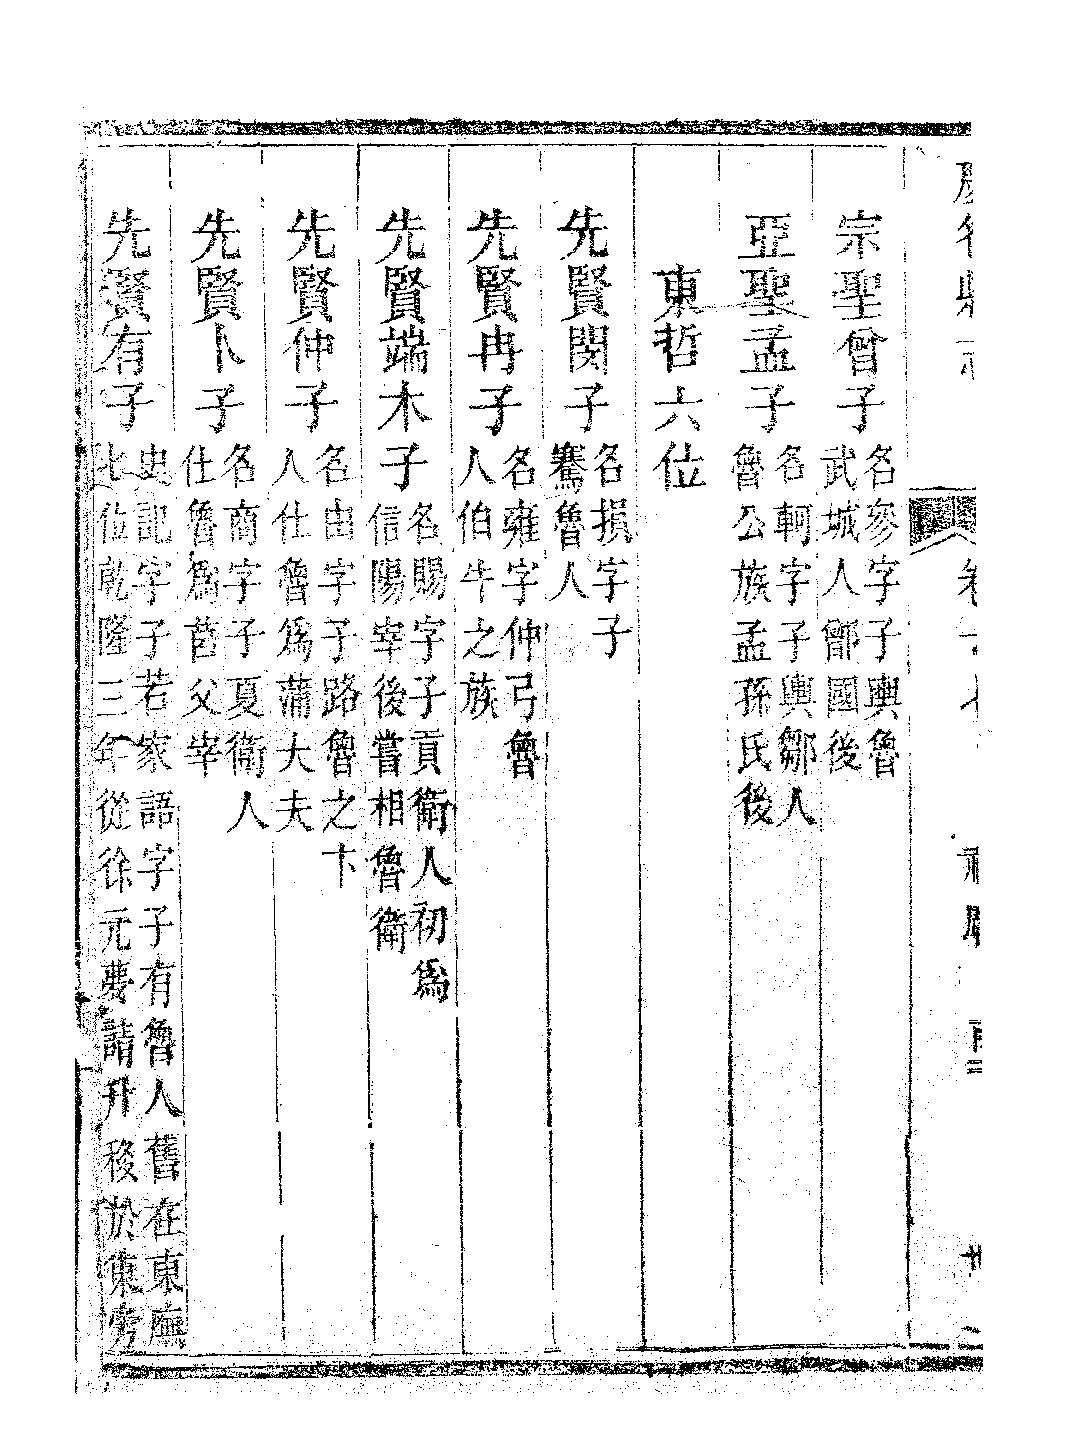 宗聖曾子 名參字子輿魯
武城人鄫國後
亞聖孟子 名軻字子輿鄒人
魯公族孟孫氏後
東哲六位
先賢閔子 名損字子
騫魯人
先賢冉子 名雍字仲弓魯
人伯牛之族
先賢端木子 名賜字子貢衛人初爲
信陽宰後嘗相魯衛
先賢仲子 名由字子路魯之卞
人仕魯爲蒲大夫
先賢卜子 名商字子夏衛人
仕魯爲莒父宰
先賢有子 史記字子若家語字子有魯人舊在東廡
北位乾隆三年從徐元夢請升移於東旁